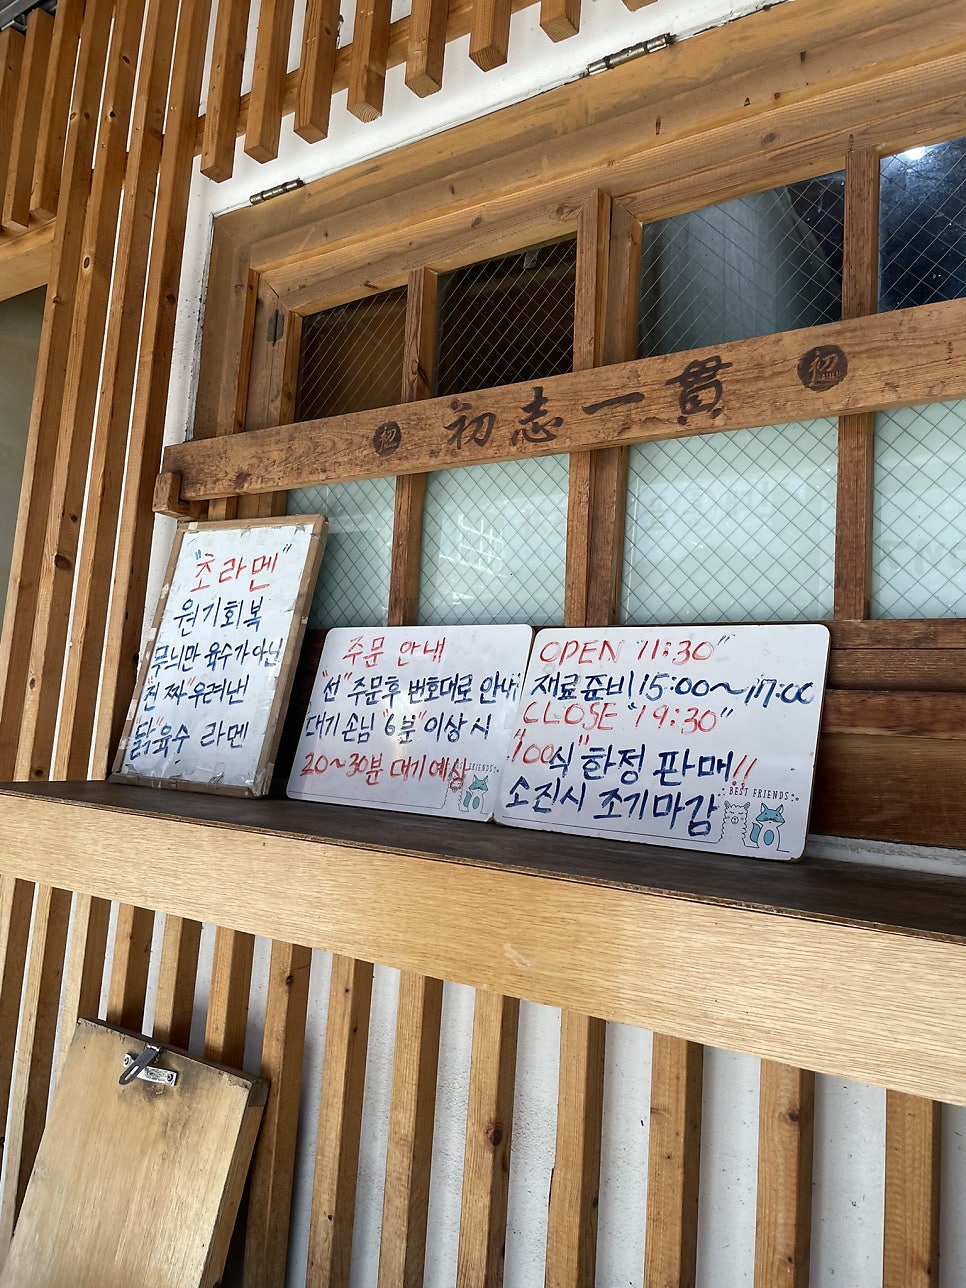 初 初志一貫 初
"초라멘"
원기회복
무늬만 육수가 아닌
"진짜" 우려낸
"닭"육수 라멘
주문 안내
"선" 주문후 번호대로 안내
대기 손님 "6분" 이상 시
20~30분 대기 예상
BEST FRIENDS
OPEN "11:30"
재료준비 15:00~17:00
CLOSE "19:30"
"100식" 한정 판매!!
소진시 조기마감
BEST FRIENDS